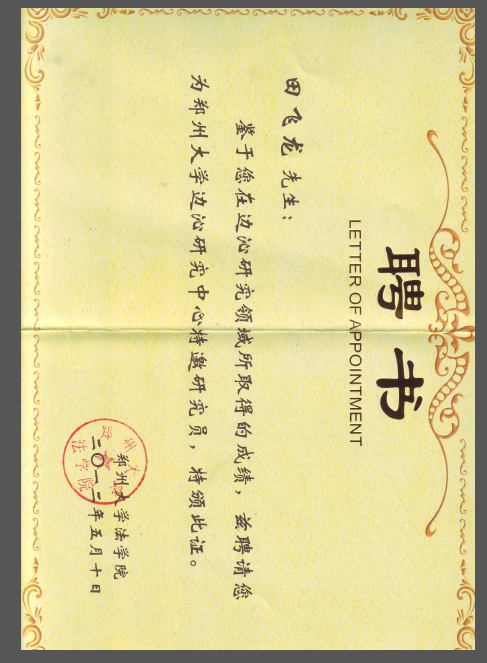 聘书
LETTER OF APPOINTMENT
田飞龙 先生：
鉴于您在边沁研究领域所取得的成绩，兹聘请您
为郑州大学边沁研究中心特邀研究员，特颁此证。
郑州大学法学院
二〇一二年五月十日
州大
法学院